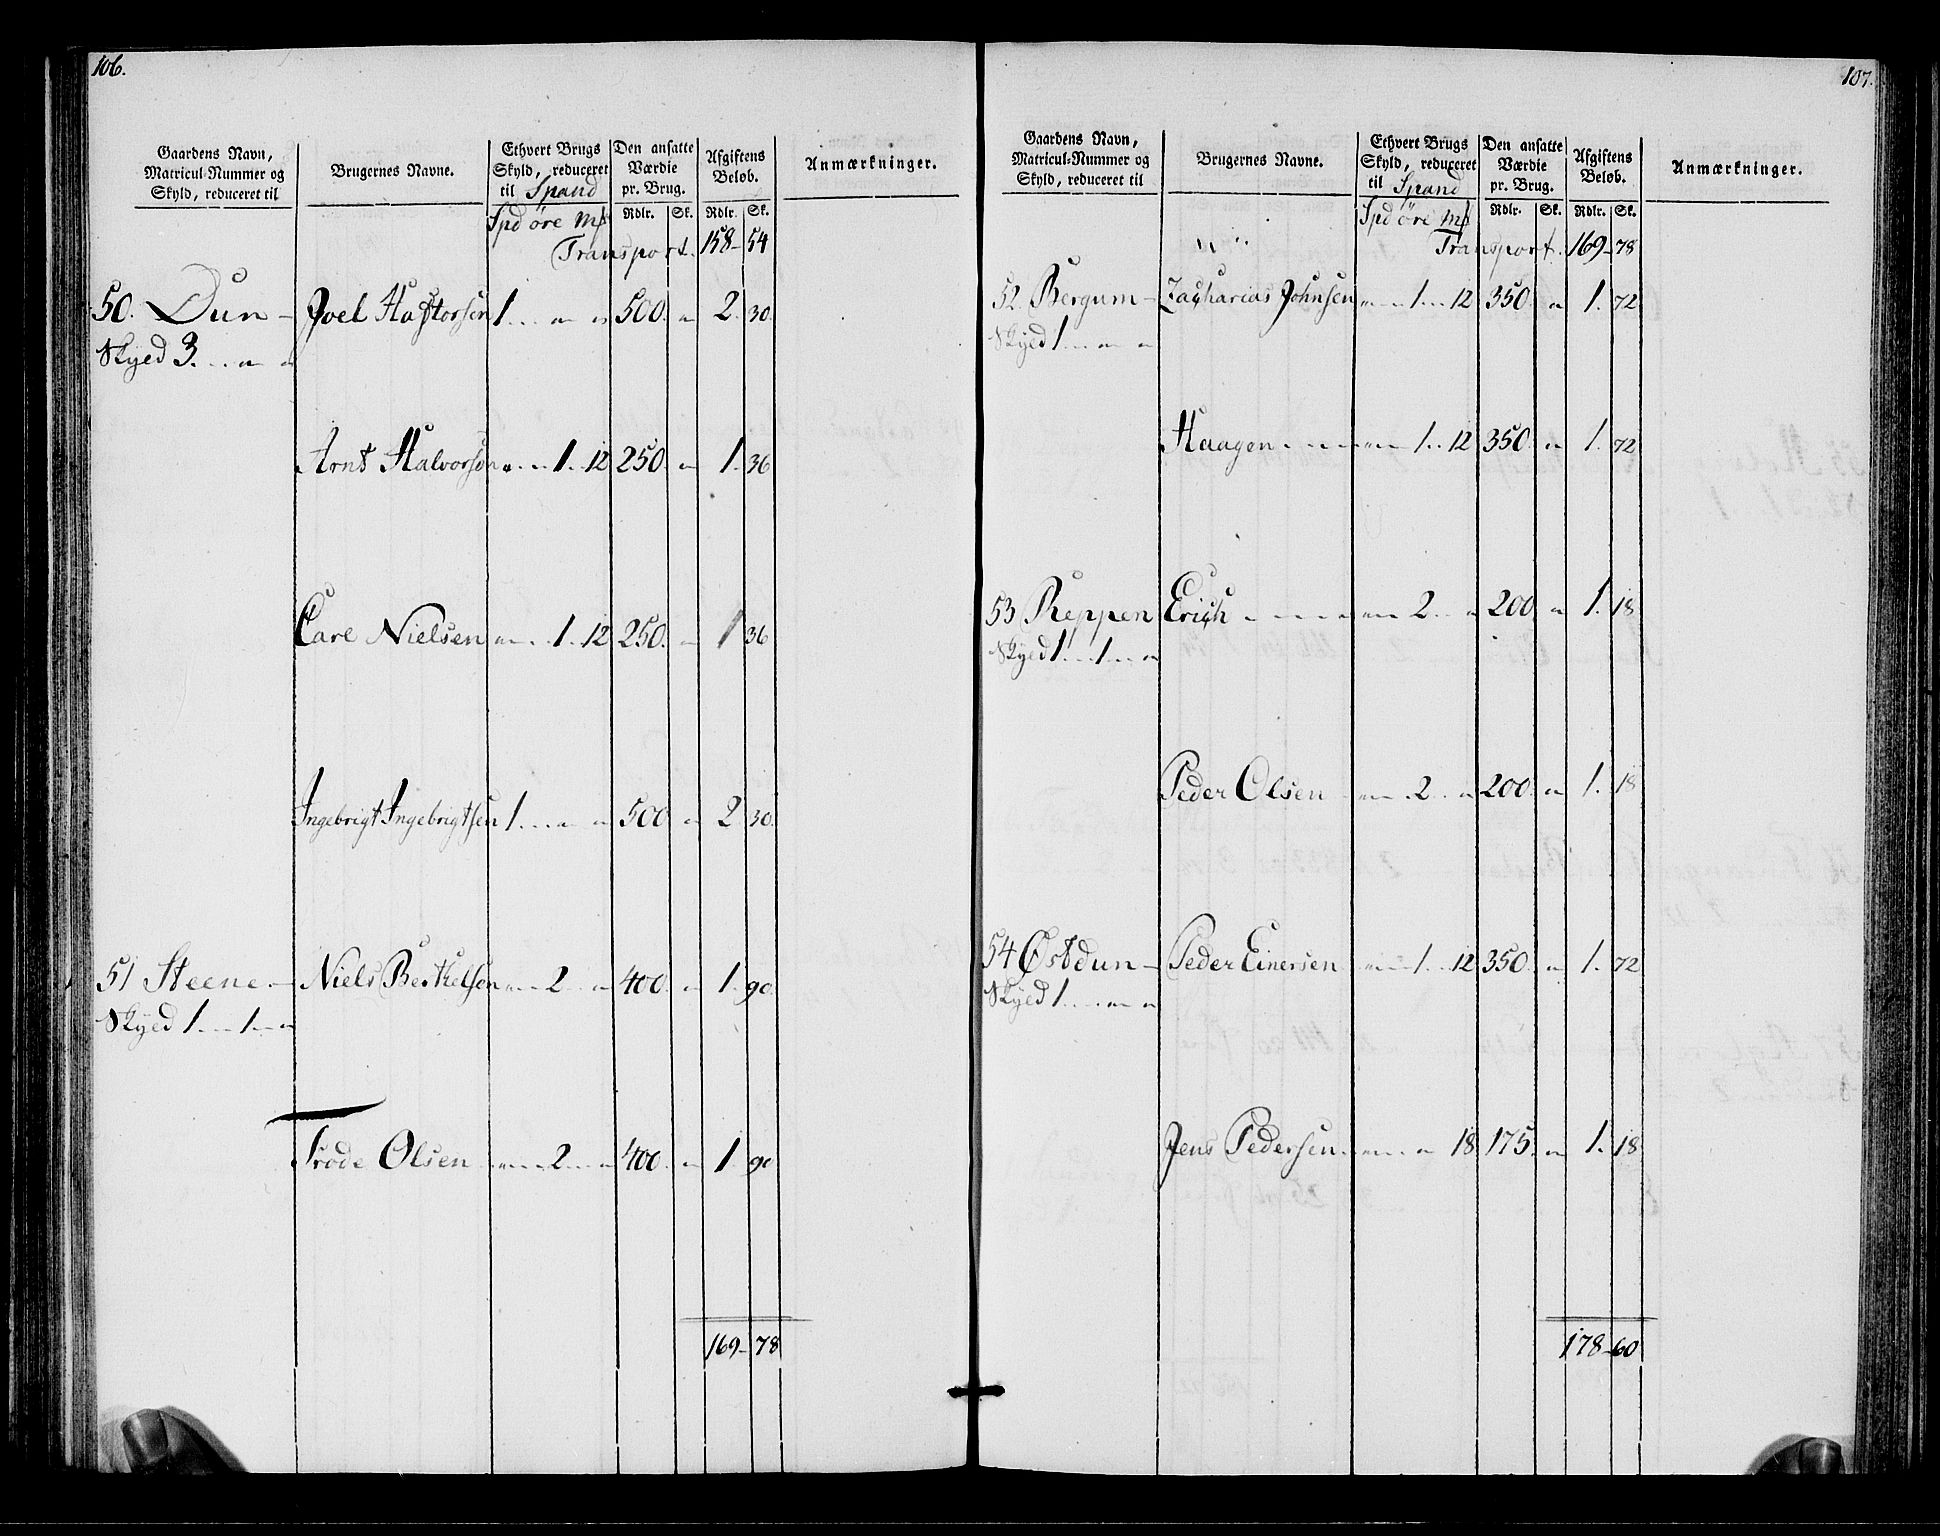 106.
Gaardens Navn, Matricul-Nummer og Skyld, reduceret til
Brugernes Navne.
Ethvert Brugs Skyld, reduceret til Spand
Den ansatte Værdie pr. Brug.
Afgiftens Beløb.
Anmærkninger.
Spd öre mk Rdlr. Sk. Rdlr. Sk.
Transport. 158 - 54
50. Dun - Joel Haftorsen 1 . . . " " 500. " 2. 30.
Skyld 3. . . " "
Arnt Halvorsen " . . 1 . . 12 250. " 1. 36
Care Nielsen " . . 1 . . 12 250. " 1 36
Ingebrigt Ingebrigtsen 1 . . . " " 500 " 2 30.
51 Steene - Niels Berthelsen " . . 2 . . " 400. " 1. 90.
Skyld 1 . . . 1 . . "
Frode Olsen " . . 2 . . " 400. " 1. 90
169 - 78
107.
Gaardens Navn, Matricul-Nummer og Skyld, reduceret til
Brugernes Navne.
Ethvert Brugs Skyld, reduceret til Spand
Den ansatte Værdie pr. Brug.
Afgiftens Beløb.
Anmærkninger.
Spd öre mk Rdlr. Sk. Rdlr. Sk.
" " Transport. 169 - 78
52. Bergum - Zacharias Johnsen " . . 1 . . 12 350. " 1. 72
Skyld 1 . . . " "
Haagen . . . . " . . 1 . . 12 350. " 1. 72
53 Reppen Erich . . . . " . . 2 . . " 200 " 1. 18
Skyld 1 . . . 1 . . "
Peder Olsen " . . 2 . . " 200. " 1. 18
54 Østdun - Peder Einersen " . . 1 . . 12 350. " 1. 72
Skyld 1 . . . " "
Jens Pedersen . " . . " 18 175. " 1. 18
178 - 60